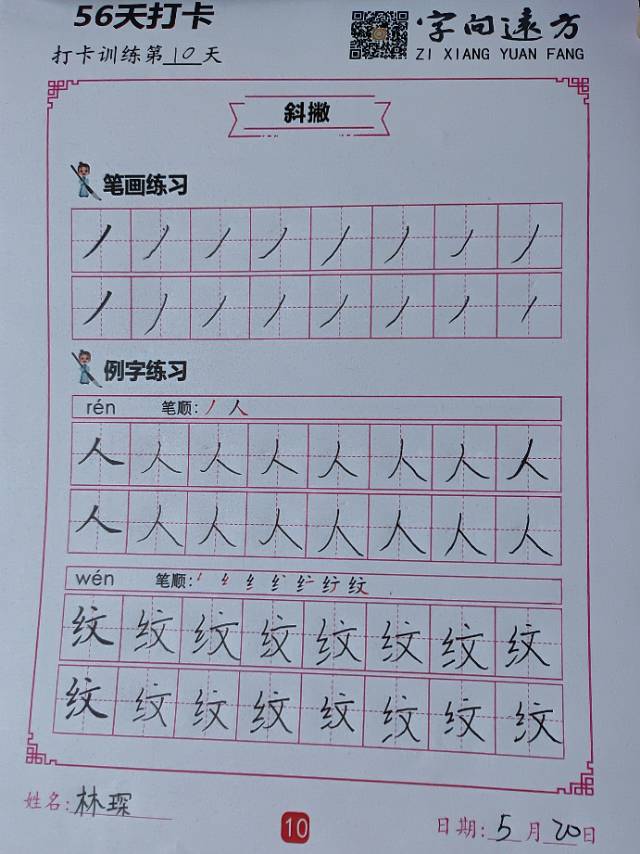 56天打卡
字向远方
打卡训练第10天
ZI XIANG YUAN FANG
斜撇
笔画练习
丿丿丿丿丿丿丿丿
丿丿丿丿丿丿丿丿
例字练习
rén 笔顺: 丿 人
人人人人人人人人
人人人人人人人人
wén 笔顺: 纹
纹纹纹纹纹纹纹纹
纹纹纹纹纹纹纹纹
姓名: 林琛
10
日期: 5月20日